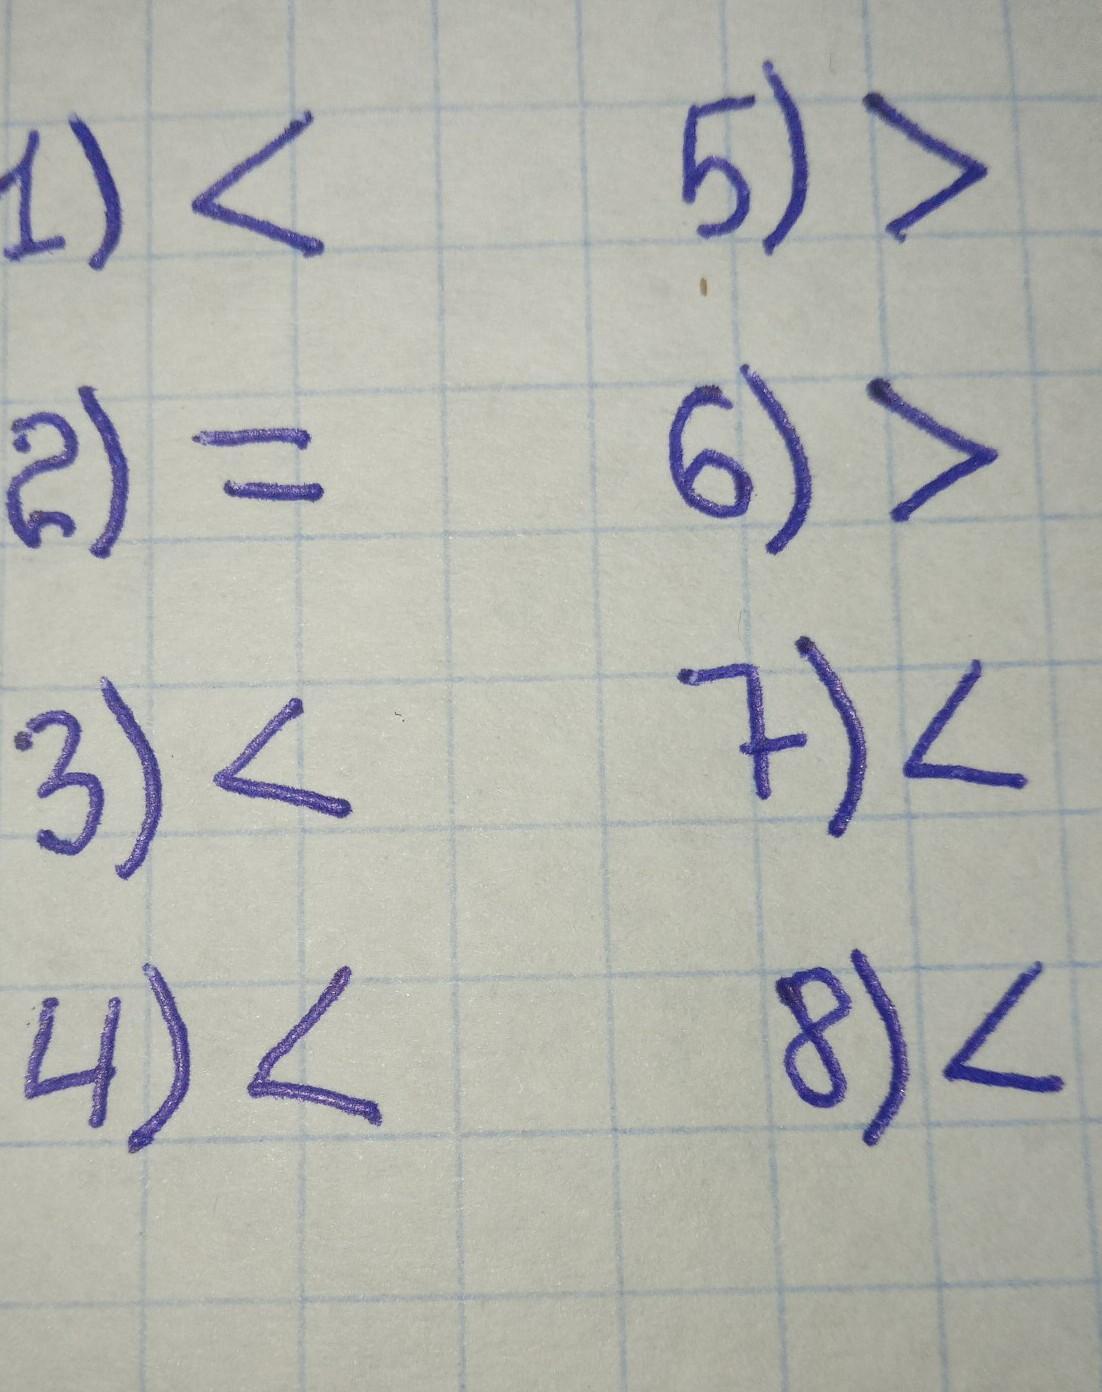 1) <
2) =
3) <
4) <
5) >
6) >
7) <
8) <